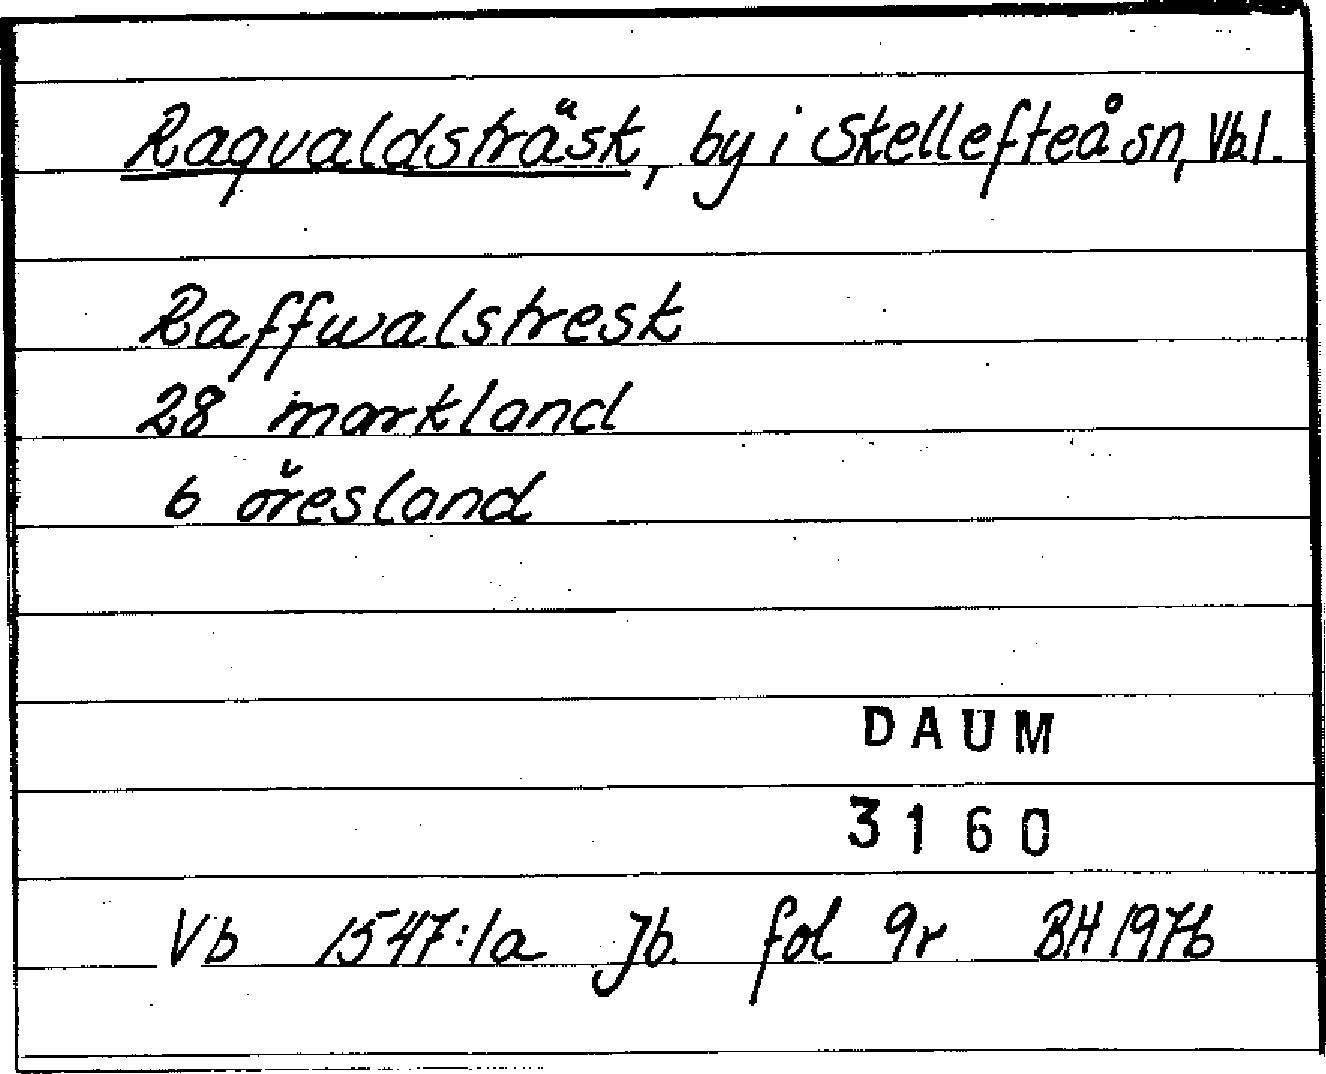 Raqvaldsträsk, by i Skellefteå sn, Vbl.
Raffwalstresk
28 markland
6 öresland
DAUM
3160
Vb 1547:1a Jb. fol 9r BH 1976